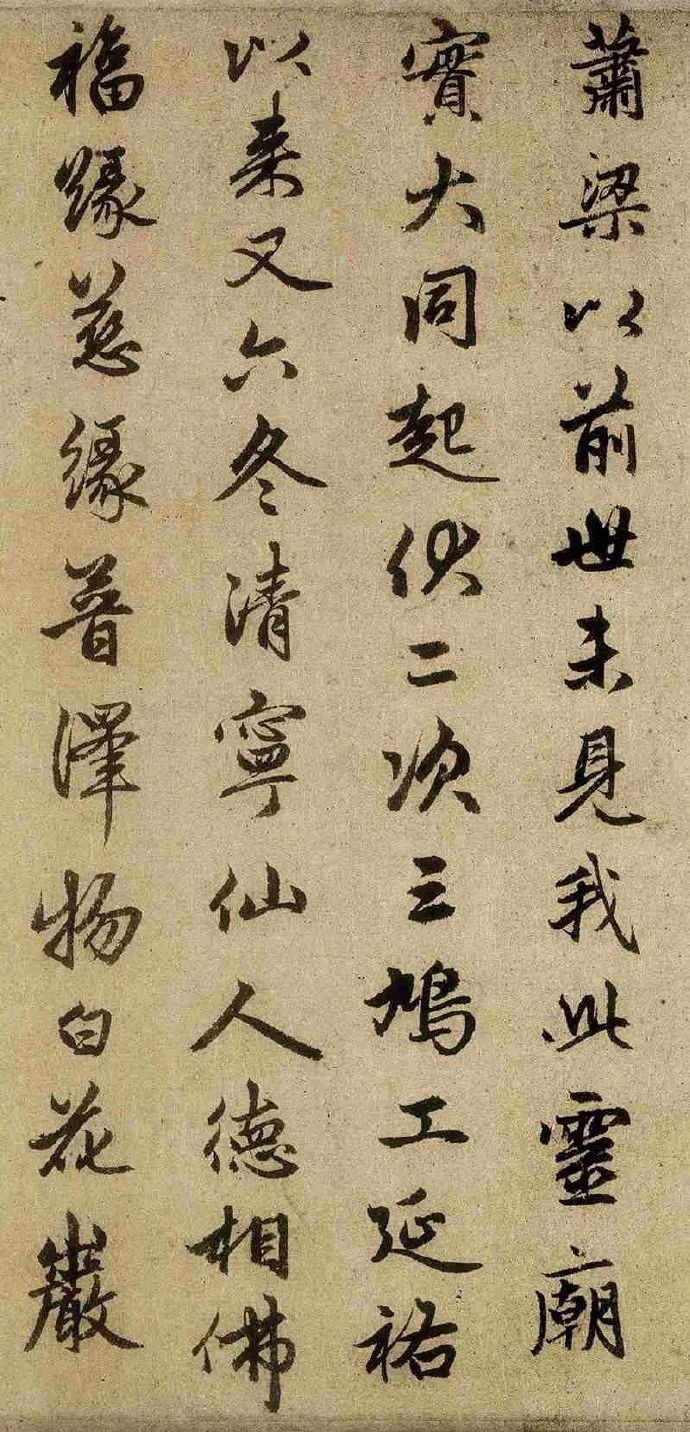 蕭梁以前世未見我此靈廟
實大同起伏二次三鳩工延祐
以来又六冬清寧仙人德相佛
福慈緣普澤物白花巖